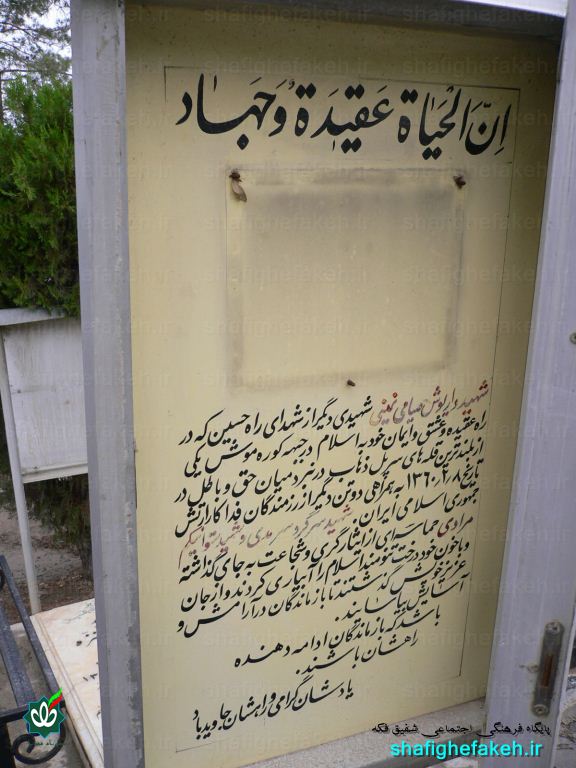 shafighefakeh.ir
إنّ الحَیَاة عَقیدَة وَجَهَاد
شهید داریوش صیامی نمینی شهیدی دیگر از شهدای راه حسین که در
راه عقیده و عشق و ایمان خود به اسلام در جبهه کوره موش یکی
از بلندترین قله های سرپل ذهاب در نبرد میان حق و باطل در
تاریخ ۱۳۶۰/۲/۸ به همراهی دو تن دیگر از رزمندگان فداکار ارتش
جمهوری اسلامی ایران شهید سرگرد و شهید ستوانیکم
مرادی حماسه ای از ایثارگری و شجاعت به جای گذاشته
و با خون خود درخت تنومند اسلام را آبیاری کردند و از جان
عزیز خویش گذشتند تا بازماندگان در آرامش و
آسایش بیاسایند.
باشد که بازماندگان ادامه دهنده
راهشان باشند.
یادشان گرامی و راهشان جاوید باد
پایگاه فرهنگی اجتماعی شفیق فکه
shafighefakeh.ir